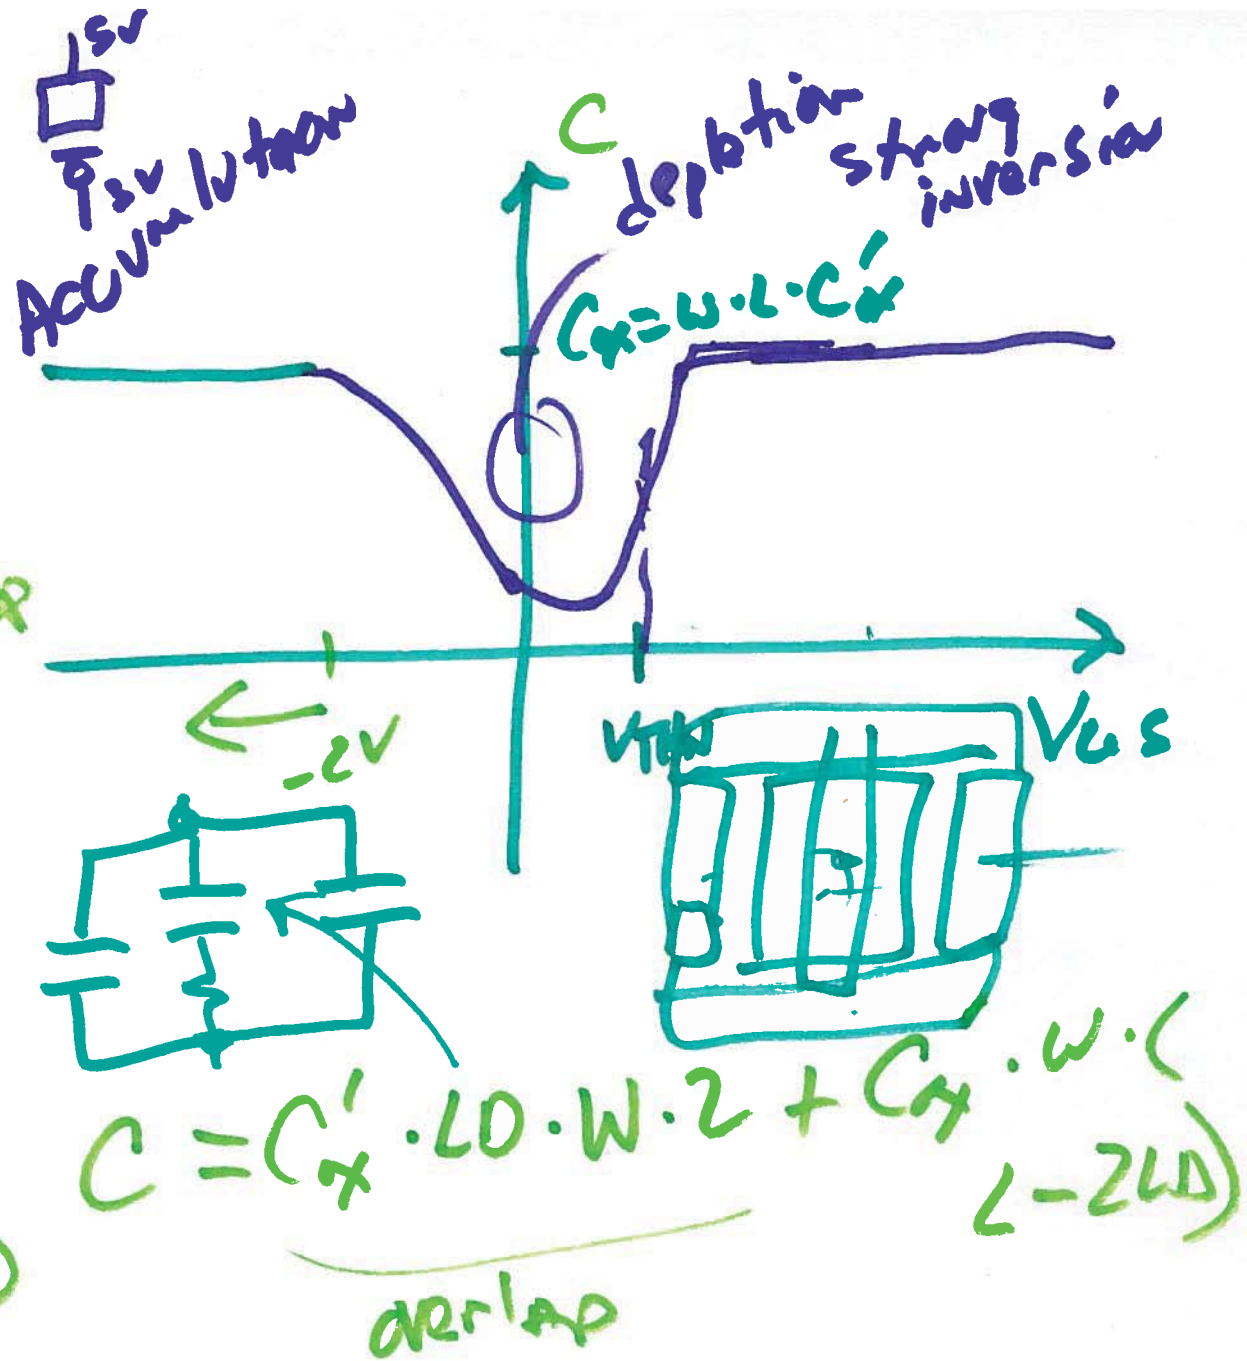 5V
3V
Accumulution
C
depletion
strong
inversion
Cox=W·L·C'ox
P
-2V
VTHN
VGS
C = C'ox·LD·W·2 + Cox·W·(
L-2LD)
overlap